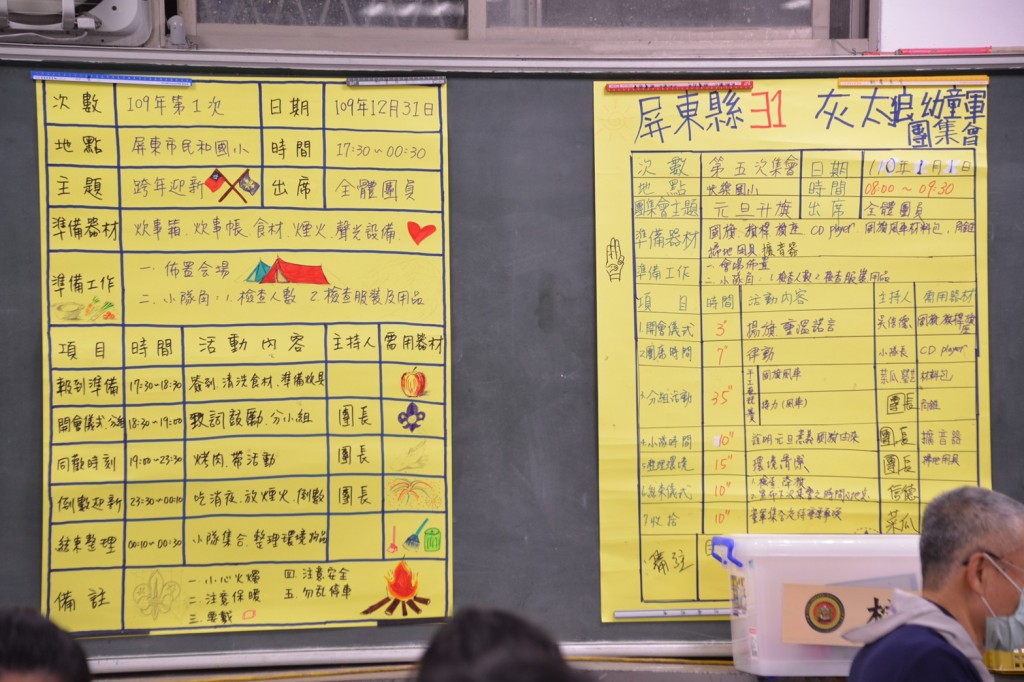 次數 109年第1次 日期 109年12月31日
地點 屏東市民和國小 時間 17:30~00:30
主題 跨年迎新 出席 全體團員
準備器材 炊事箱、炊事帳、食材、煙火、聲光設備、
準備工作 一、佈置会場
二、小隊角:1.檢查人數 2.檢查服裝及用品
項目 時間 活動內容 主持人 需用器材
報到準備 17:30~18:30 春到、清洗食材、準備炊具
開會儀式.分組 18:30~19:00 致詞鼓勵、分小組 團長
同歡時刻 19:00~23:30 烤肉、帶活動 團長
倒數迎新 23:30~00:10 吃消夜、放煙火、倒數 團長
結束整理 00:10~00:30 小隊集合、整理環境物品
備註 一、小心火燭 四、注意安全
二、注意保暖 五、勿亂停車
三、
屏東縣31 灰太狼幼童軍
團集會
次數 第五次集會 日期 110年1月1日
地點 快樂國小 時間 08:00~09:30
團集會主題 元旦升旗 出席 全體團員
準備器材 國旗、旗桿、旗座 CD player 國旗風車材料包、
掃地用具 擴音器
準備工作 一、會場佈置
二、小隊角:1.檢查人數 2.檢查服裝用品
項目 時間 活動內容 主持人 需用器材
1.開會儀式 3" 揚旗、重溫諾言 國旗、旗桿、旗座
2.團長時間 7" 律動 小隊長 CD player
3.分組活動 35" 國旗風車 菜瓜 材料包
接力(風車) 團長
4.小隊時間 10" 說明元旦意義、國旗由來 團長 擴音器
5.整理環境 15" 環境清潔 團長 掃地用具
6.結束儀式 10" 信德
7.收拾 10" 菜瓜
備註